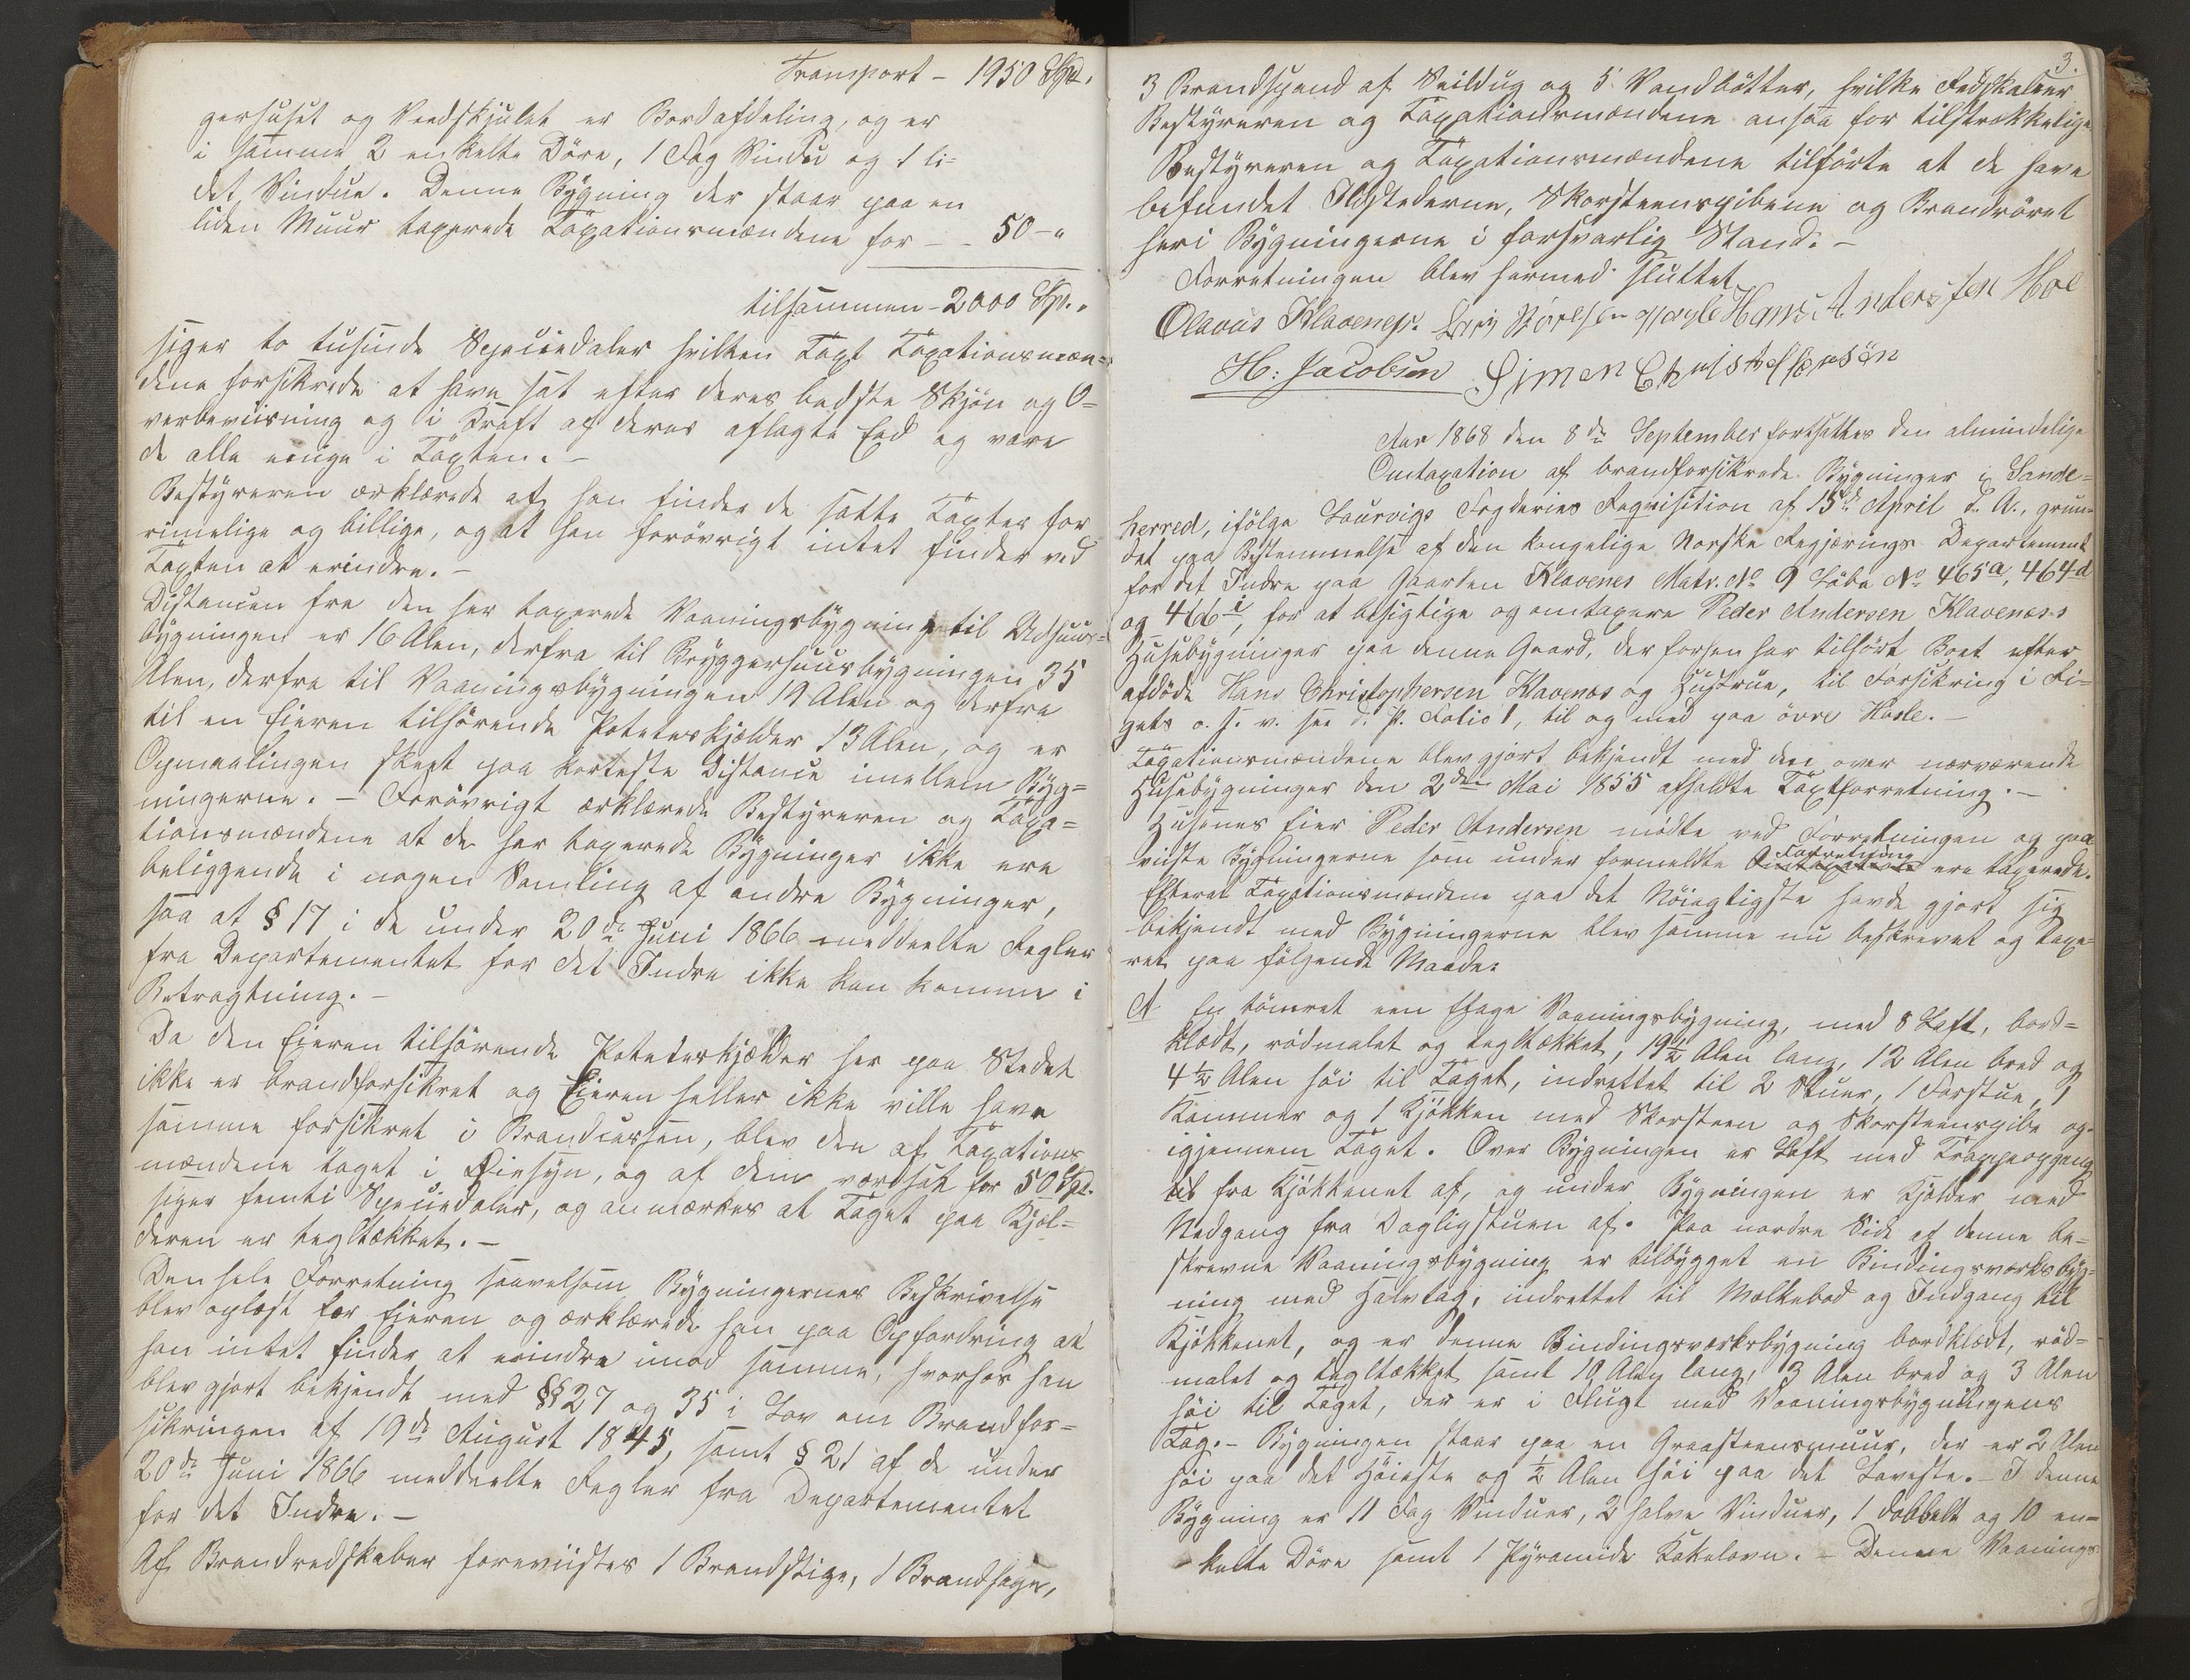 Transport - 1950 Spd.
gerhuset og Vedskjulet er Bordafdeling, og er
i samme 2 enkelte Döre, 1 Fag Vindu og 1 li-
det Vindue. Denne Bygning der staar paa en
liden Muur taxerede Taxationsmændene for - - 50 - "
tilsammen - 2000 Spd. "
siger to tusinde Speciedaler hvilken Taxt Taxationsmæn-
dene forsikrede at have sat efter deres bedste Skjön og O-
verbeviisning og i Kraft af deres aflagte Eed og vare
de alle eenige i Taxten. -
Bestyreren erklærede at han finder de satte Taxter for
rimelige og billige, og at han forövrigt intet finder ved
Taxten at erindre. -
Distancen fra den her taxerede Vaaningsbygning til Udhuus-
bygningen er 16 Alen, derfra til Bryggerhuusbygningen 35
Alen, derfra til Vaaningsbygningen 19 Alen og derfra
til en Eieren tilhörende Poteteskjælder 13 Alen, og er
Opmaalingen skeet paa korteste Distance imellem Byg-
ningerne. - Forövrigt erklærede Bestyreren og Taxa-
tionsmændene at de her taxerede Bygninger ikke ere
beliggende i nogen Samling af andre Bygninger,
saa at § 17 i de under 20de Juni 1866 meddeelte Regler
fra Departementet for det Indre ikke kan komme i
Betragtning. -
Da den Eieren tilhörende Poteteskjælder her paa Stedet
ikke er brandforsikret og Eieren heller ikke ville have
samme forsikret i Brandcassen, blev den af Taxations
mændene taget i Öiesyn, og af dem værdsat for 50 Spd.
siger femti Speciedaler, og anmærkes at Taget paa Kjæl-
deren er tegltækket. -
Den hele Forretning saavelsom Bygningernes Beskrivelse
blev oplæst for Eieren og erklærede han paa Opfordring at
han intet finder at erindre imod samme, hvorhos han
blev gjort bekjendt med §§ 27 og 35 i Lov om Brandfor-
sikringen af 19de August 1845, samt § 21 af de under
20de Juni 1866 meddeelte Regler fra Departementet
for det Indre. -
Af Brandredskaber foreviistes 1 Brandstige, 1 Brandhage,
3.
3 Brandspand af Seildug og 5 Vandbötter, hvilke Redskaber
Bestyreren og Taxationsmændene ansaa for tilstrækkelige
Bestyreren og Taxationsmændene tilförte at de have
befundet Ildstederne, Skorsteenspiberne og Brandröret
heri Bygningerne i forsvarlig Stand. -
Forretningen blev hermed sluttet
Olavus Klavenes. Sörensen Hans Andersen Moe
H: Jacobsen Simen Christoffersön
Aar 1868 den 8de September fortsattes den almindelige
Omtaxation af brandforsikrede Bygninger i Sande-
herred, ifölge Laurvigs Fogderies Requisition af 15de April d. A., grun-
det paa Bestemmelse af den kongelige Norske Regjærings Departement
for det Indre paa Gaarden Klavenes Matr. No 9 Löbe No 465a, 464d
og 466i, for at besigtige og omtaxere Peder Andersen Klavenæs's
Husebygninger paa denne Gaard, der forhen har tilhört Boet efter
afdöde Hans Christophersen Klavenæs og Hustrue, til Forsikring i Ri-
gets o. s. v. see d. P. Folio 1, til og med paa övre Hasle. -
Taxationsmændene blev gjort bekjendt med den over nærværende
Husebygninger den 2den Mai 1855 afholdte Taxtforretning. -
Husenes Eier Peder Andersen mödte ved Forretningen og paa
viiste Bygningerne som under formeldte Forretning ere taxerede.
Efterat Taxationsmændene paa det Nöiagtigste havde gjort sig
bekjendt med Bygningerne blev samme nu beskrevet og taxe-
ret paa fölgende Maade:
A En tömret een Etage Vaaningsbygning, med 8 Laft, bord-
klædt, rödmalet og tegltækket, 19½ Alen lang, 12 Alen bred og
4½ Alen höi til Taget, indrettet til 2 Stuer, 1 Forstue, 1
Kammer og 1 Kjökken med Skorsteen og Skorsteenspibe op
igjennem Taget. Over Bygningen er Loft med Trappeopgang
til fra Kjökkenet af, og under Bygningen er Kjælder med
Nedgang fra Dagligstuen af. Paa nordre Side af denne be-
skrevne Vaaningsbygning er tilbygget en Bindingsværksbyg-
ning med Halvtag, indrettet til Melkebod og Indgang til
Kjökkenet, og er denne Bindingsværksbygning bordklædt, röd-
malet og tegltækket samt 10 Alen lang, 3 Alen bred og 3 Alen
höi til Taget, der er i Flugt med Vaaningsbygningens
Tag. - Bygningen staar paa en Graasteensmuur, der er 2 Alen
höi paa det Höieste og ½ Alen höi paa det Laveste. - I denne
Bygning er 11 Fag Vinduer, 2 halve Vinduer, 1 dobbelt og 10 en-
kelte Döre samt 1 Pyramide Kakelovn. - Denne Vaanings